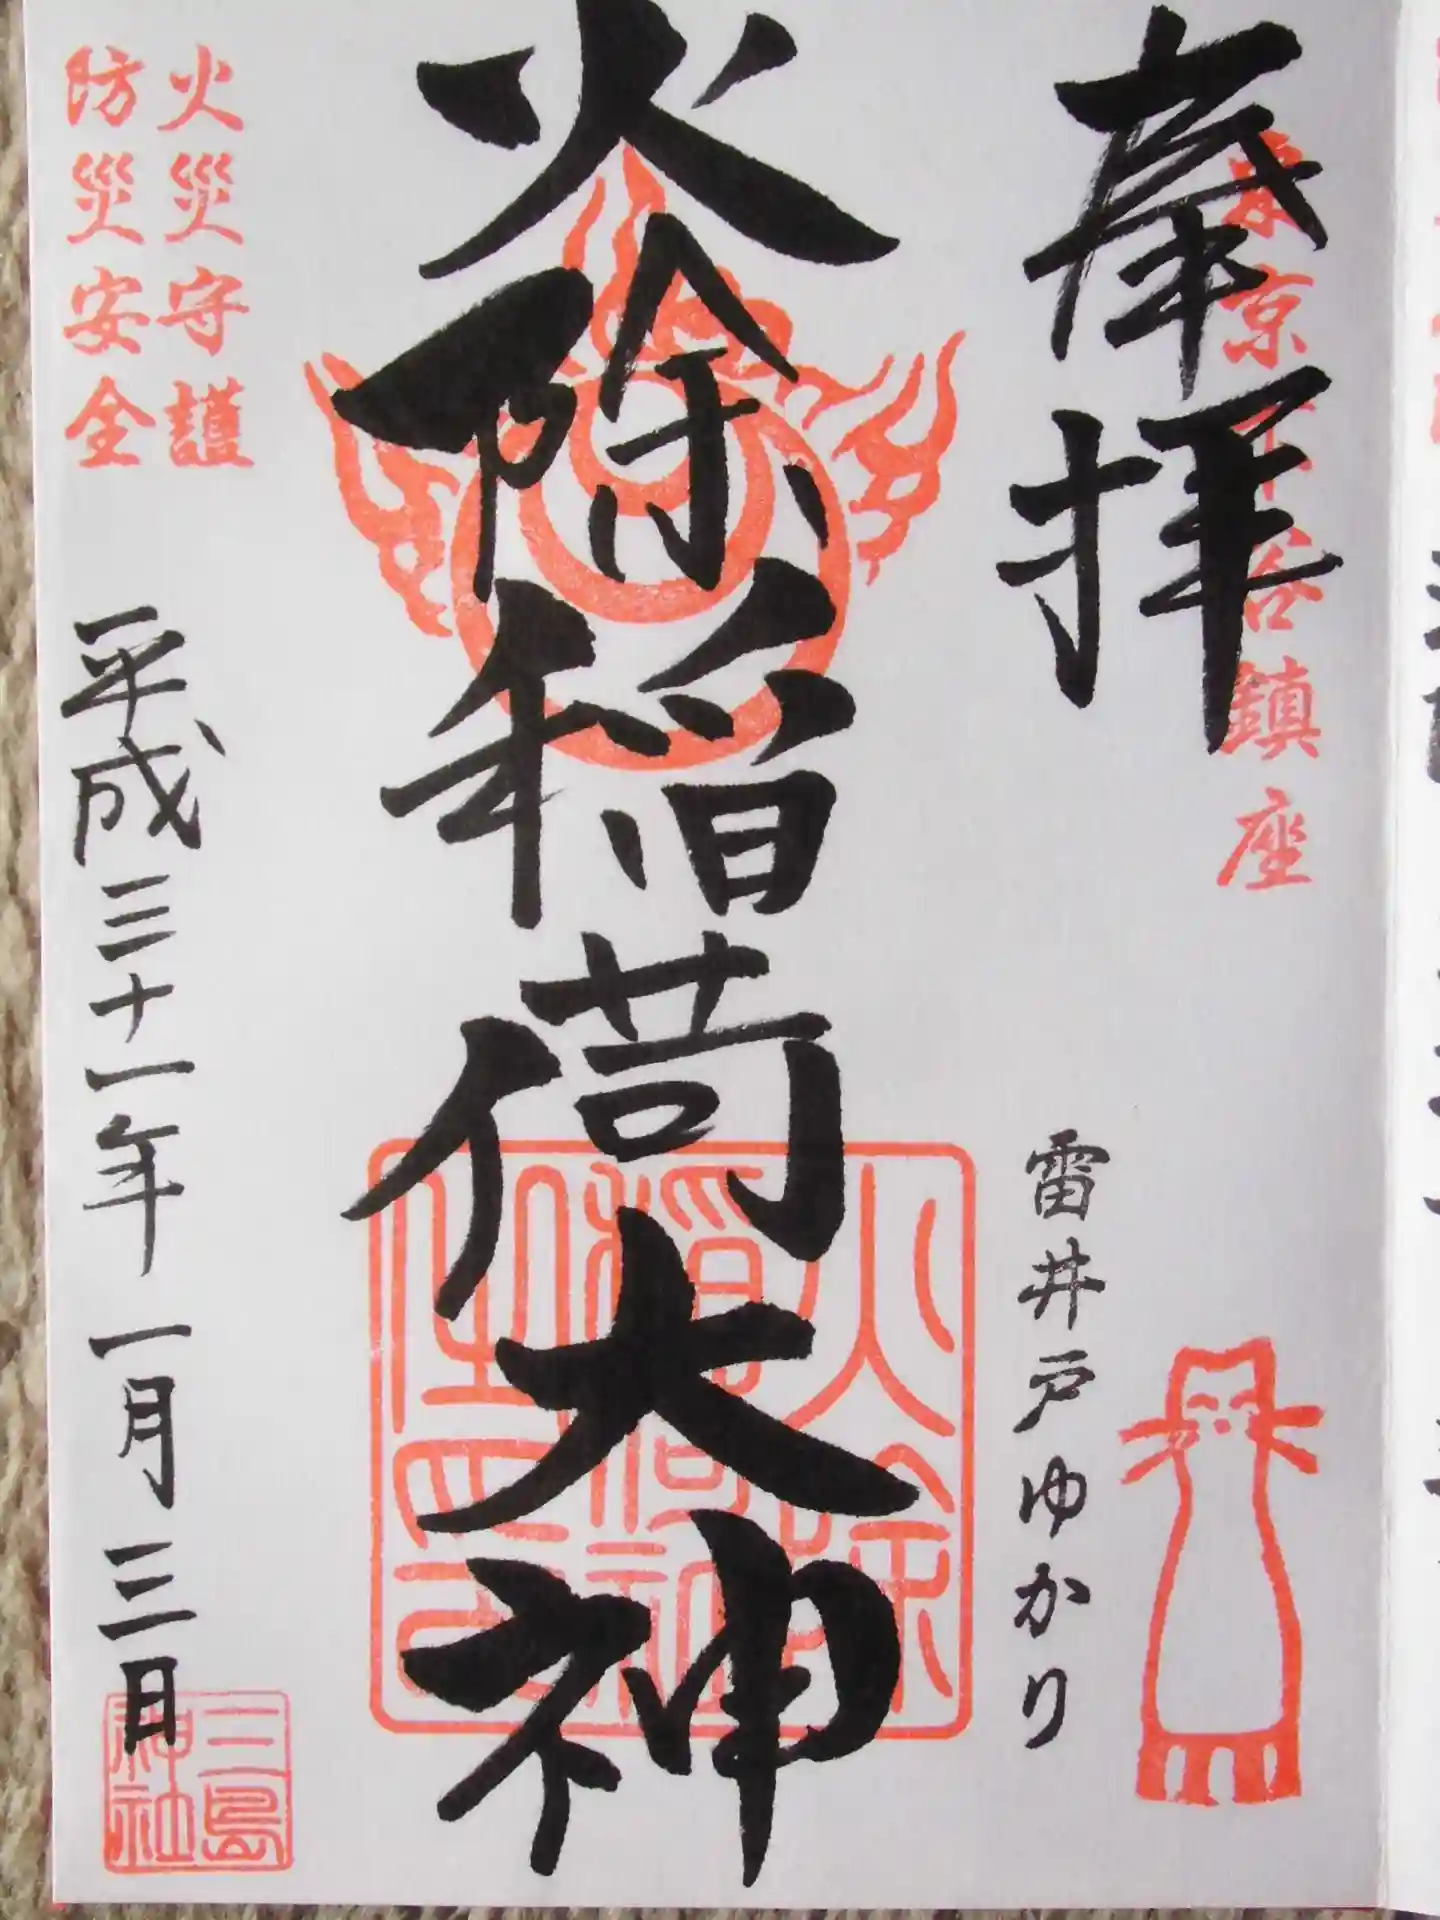 東京下谷鎮座
奉拝
雷井戸ゆかり
火除稲荷大神
火除
稲荷社
火災守護
防災安全
平成三十一年一月三日
三島
神社